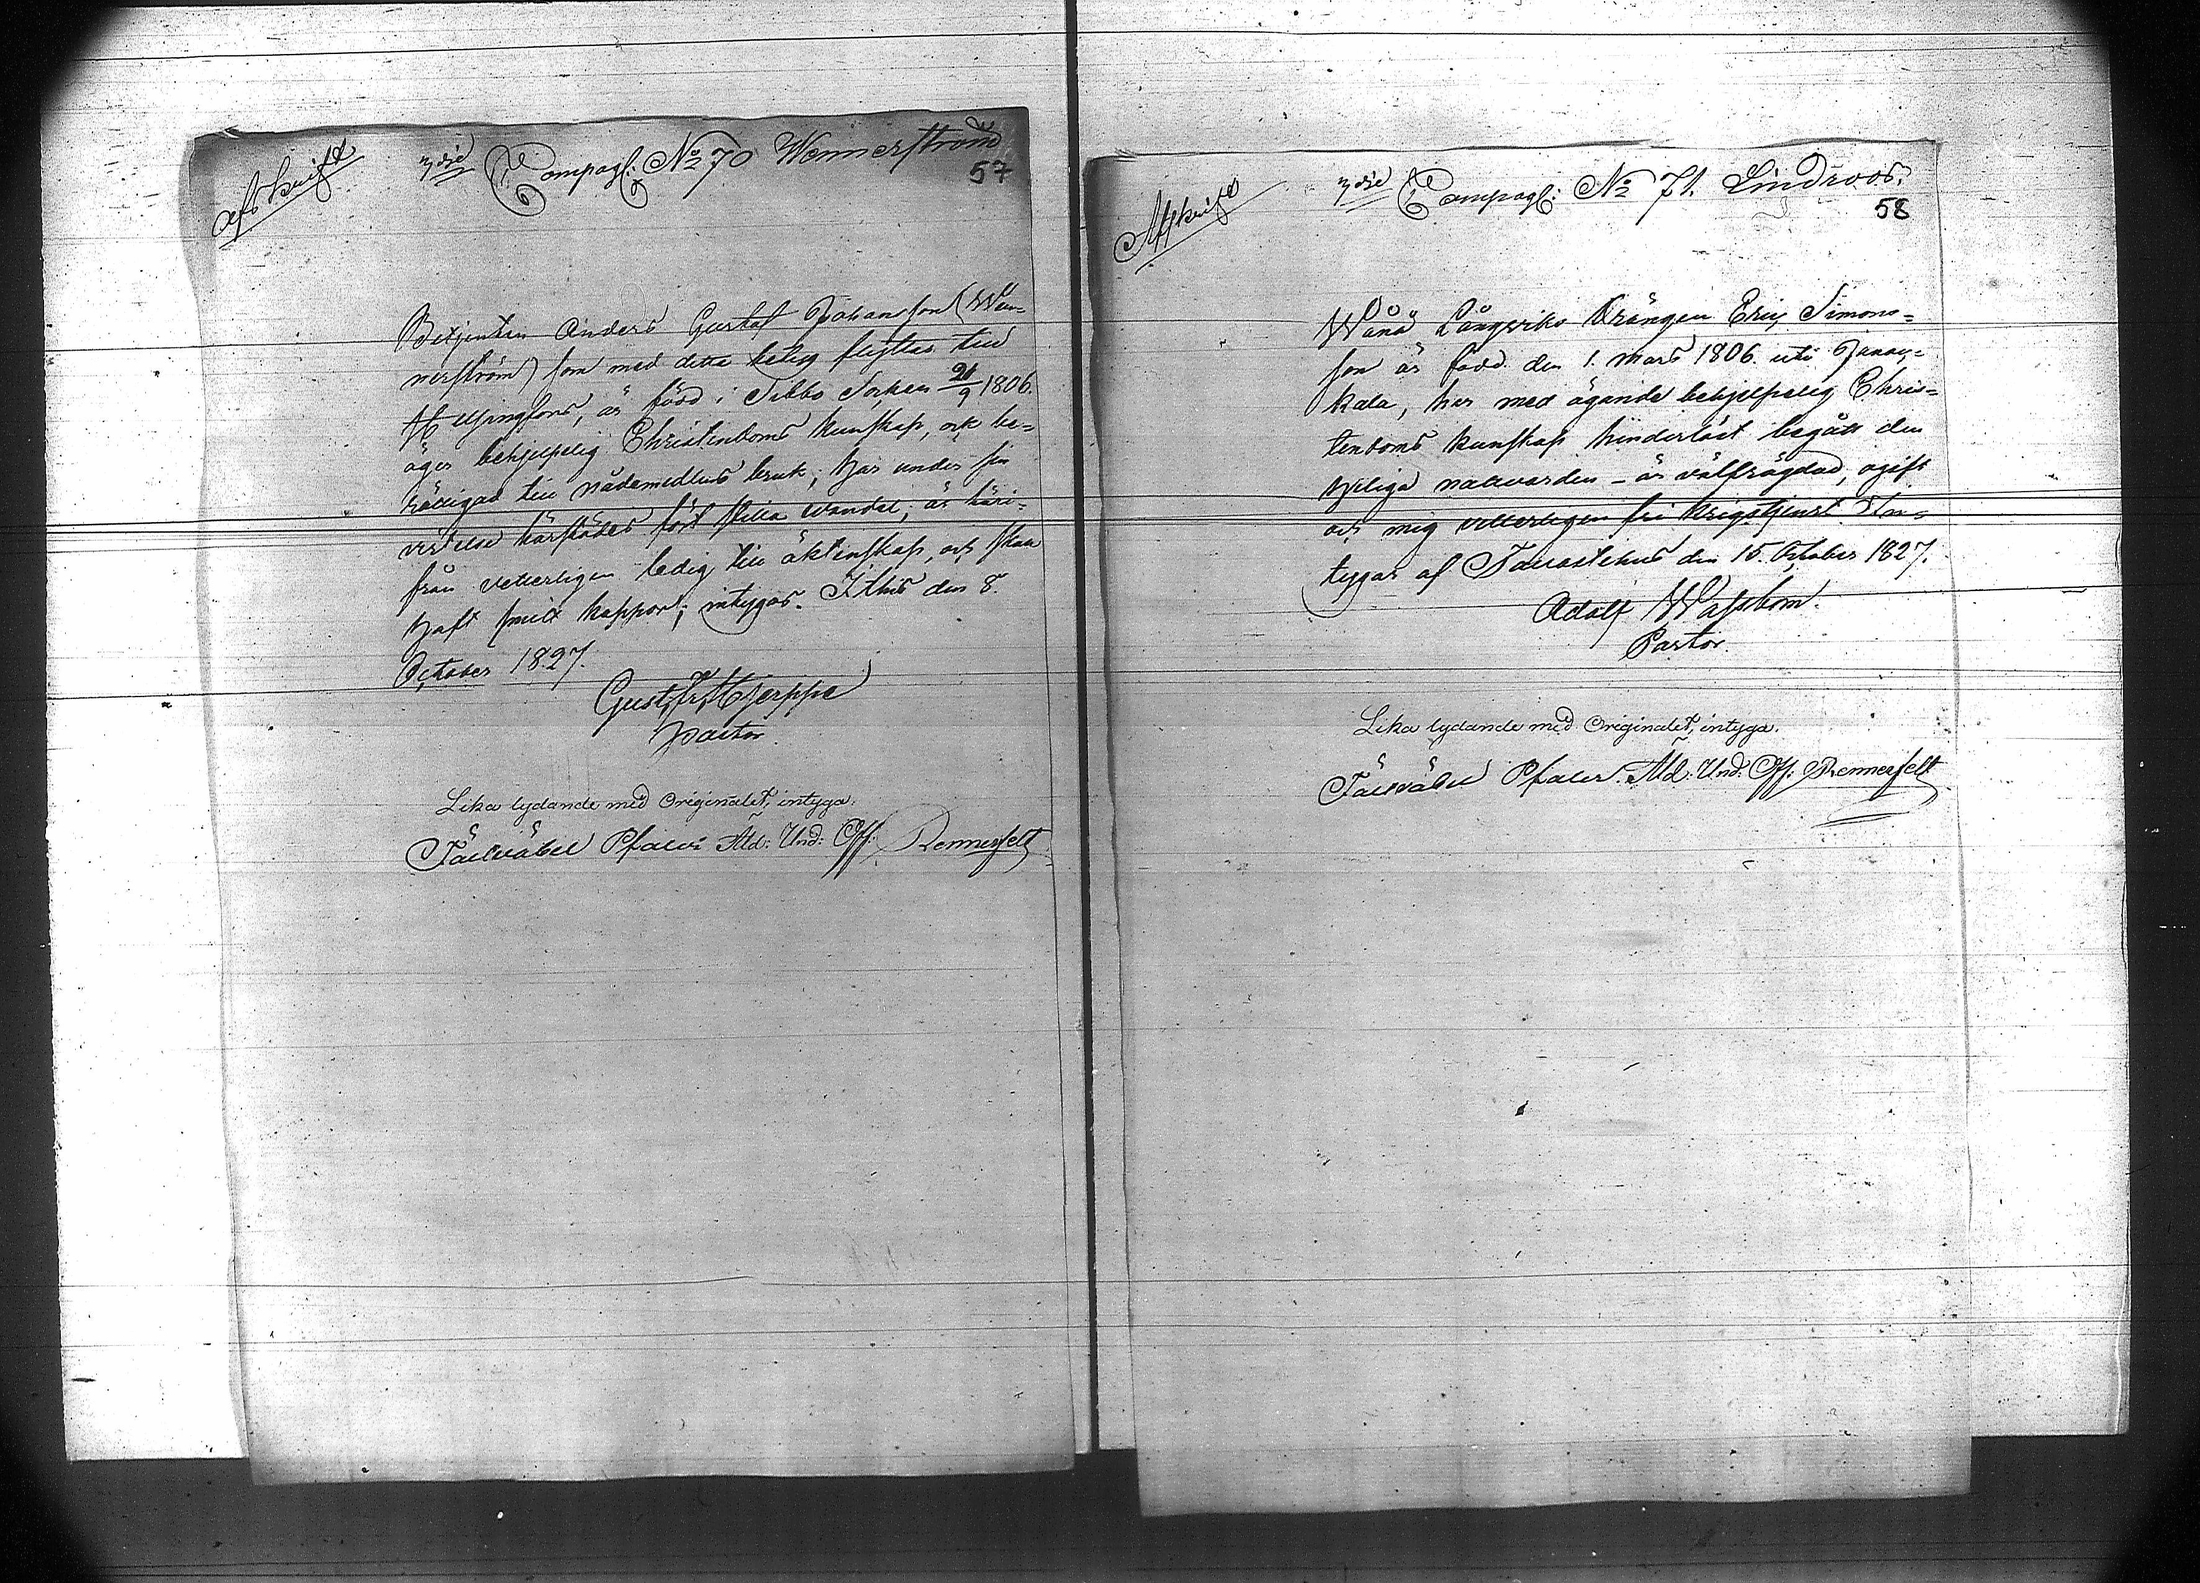 Afskrift
3dje Compagl: No 70 Wennerström
57
Betjenten Anders Gustaf Johansson (Wen-
nerström) som med detta betyg flyttar till
Helsingfors, är född i Sibbo Socken 21/9 1806.
äger behjelpelig Christendoms kunskap, ock be-
rättigad till nådemedlens bruk; har under sin
vistelse härstädes fört stilla vandel; är häri-
från vetterligen ledig till äktenskap, och skall
haft smitt koppor; intygas. Sthus den 8.
October 1827.
Gust. Fr. Hjerppe
Pastor.
Lika lydande med Originalet, intyga.
Fältväbel Pfaler Åld: Und: Off: Rennerfelt
Afskrift
3dje Compagl: No 71. Lindroos.
58
Wånå Långwiks Drängen Eric Simons-
son är född den 1. Mars 1806. uti Janac-
kala, har med ägande behjelpelig Chris-
tendoms kunskap hinderlöst begått den
heliga nattvarden – är välfrägdad, ogift
och mig vetterligen fri krigstjenst. Hvi-
tygas af Tavastehus den 15. October 1827.
Adolf Wassbom.
Pastor.
Lika lydande med Originalet, intyga.
Fältväbel Pfaler. Åld: Und: Off: Rennerfelt